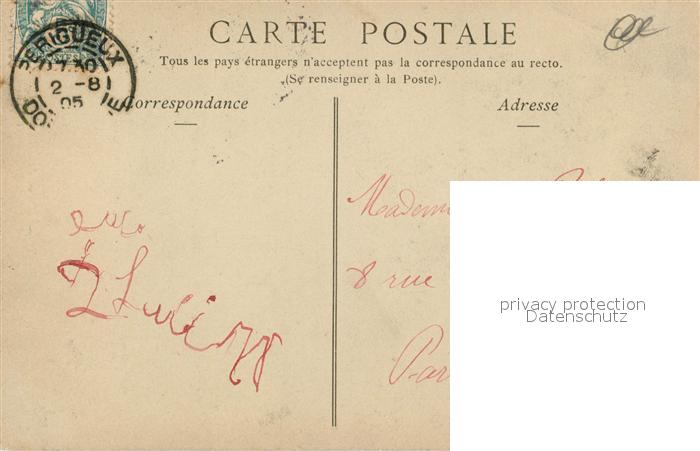 CARTE POSTALE
Tous les pays étrangers n'acceptent pas la correspondance au recto.
(Se renseigner à la Poste).
PERIGUEUX
2 -8
05
Correspondance
Adresse
Madem
8 rue
Par
privacy protection
Datenschutz